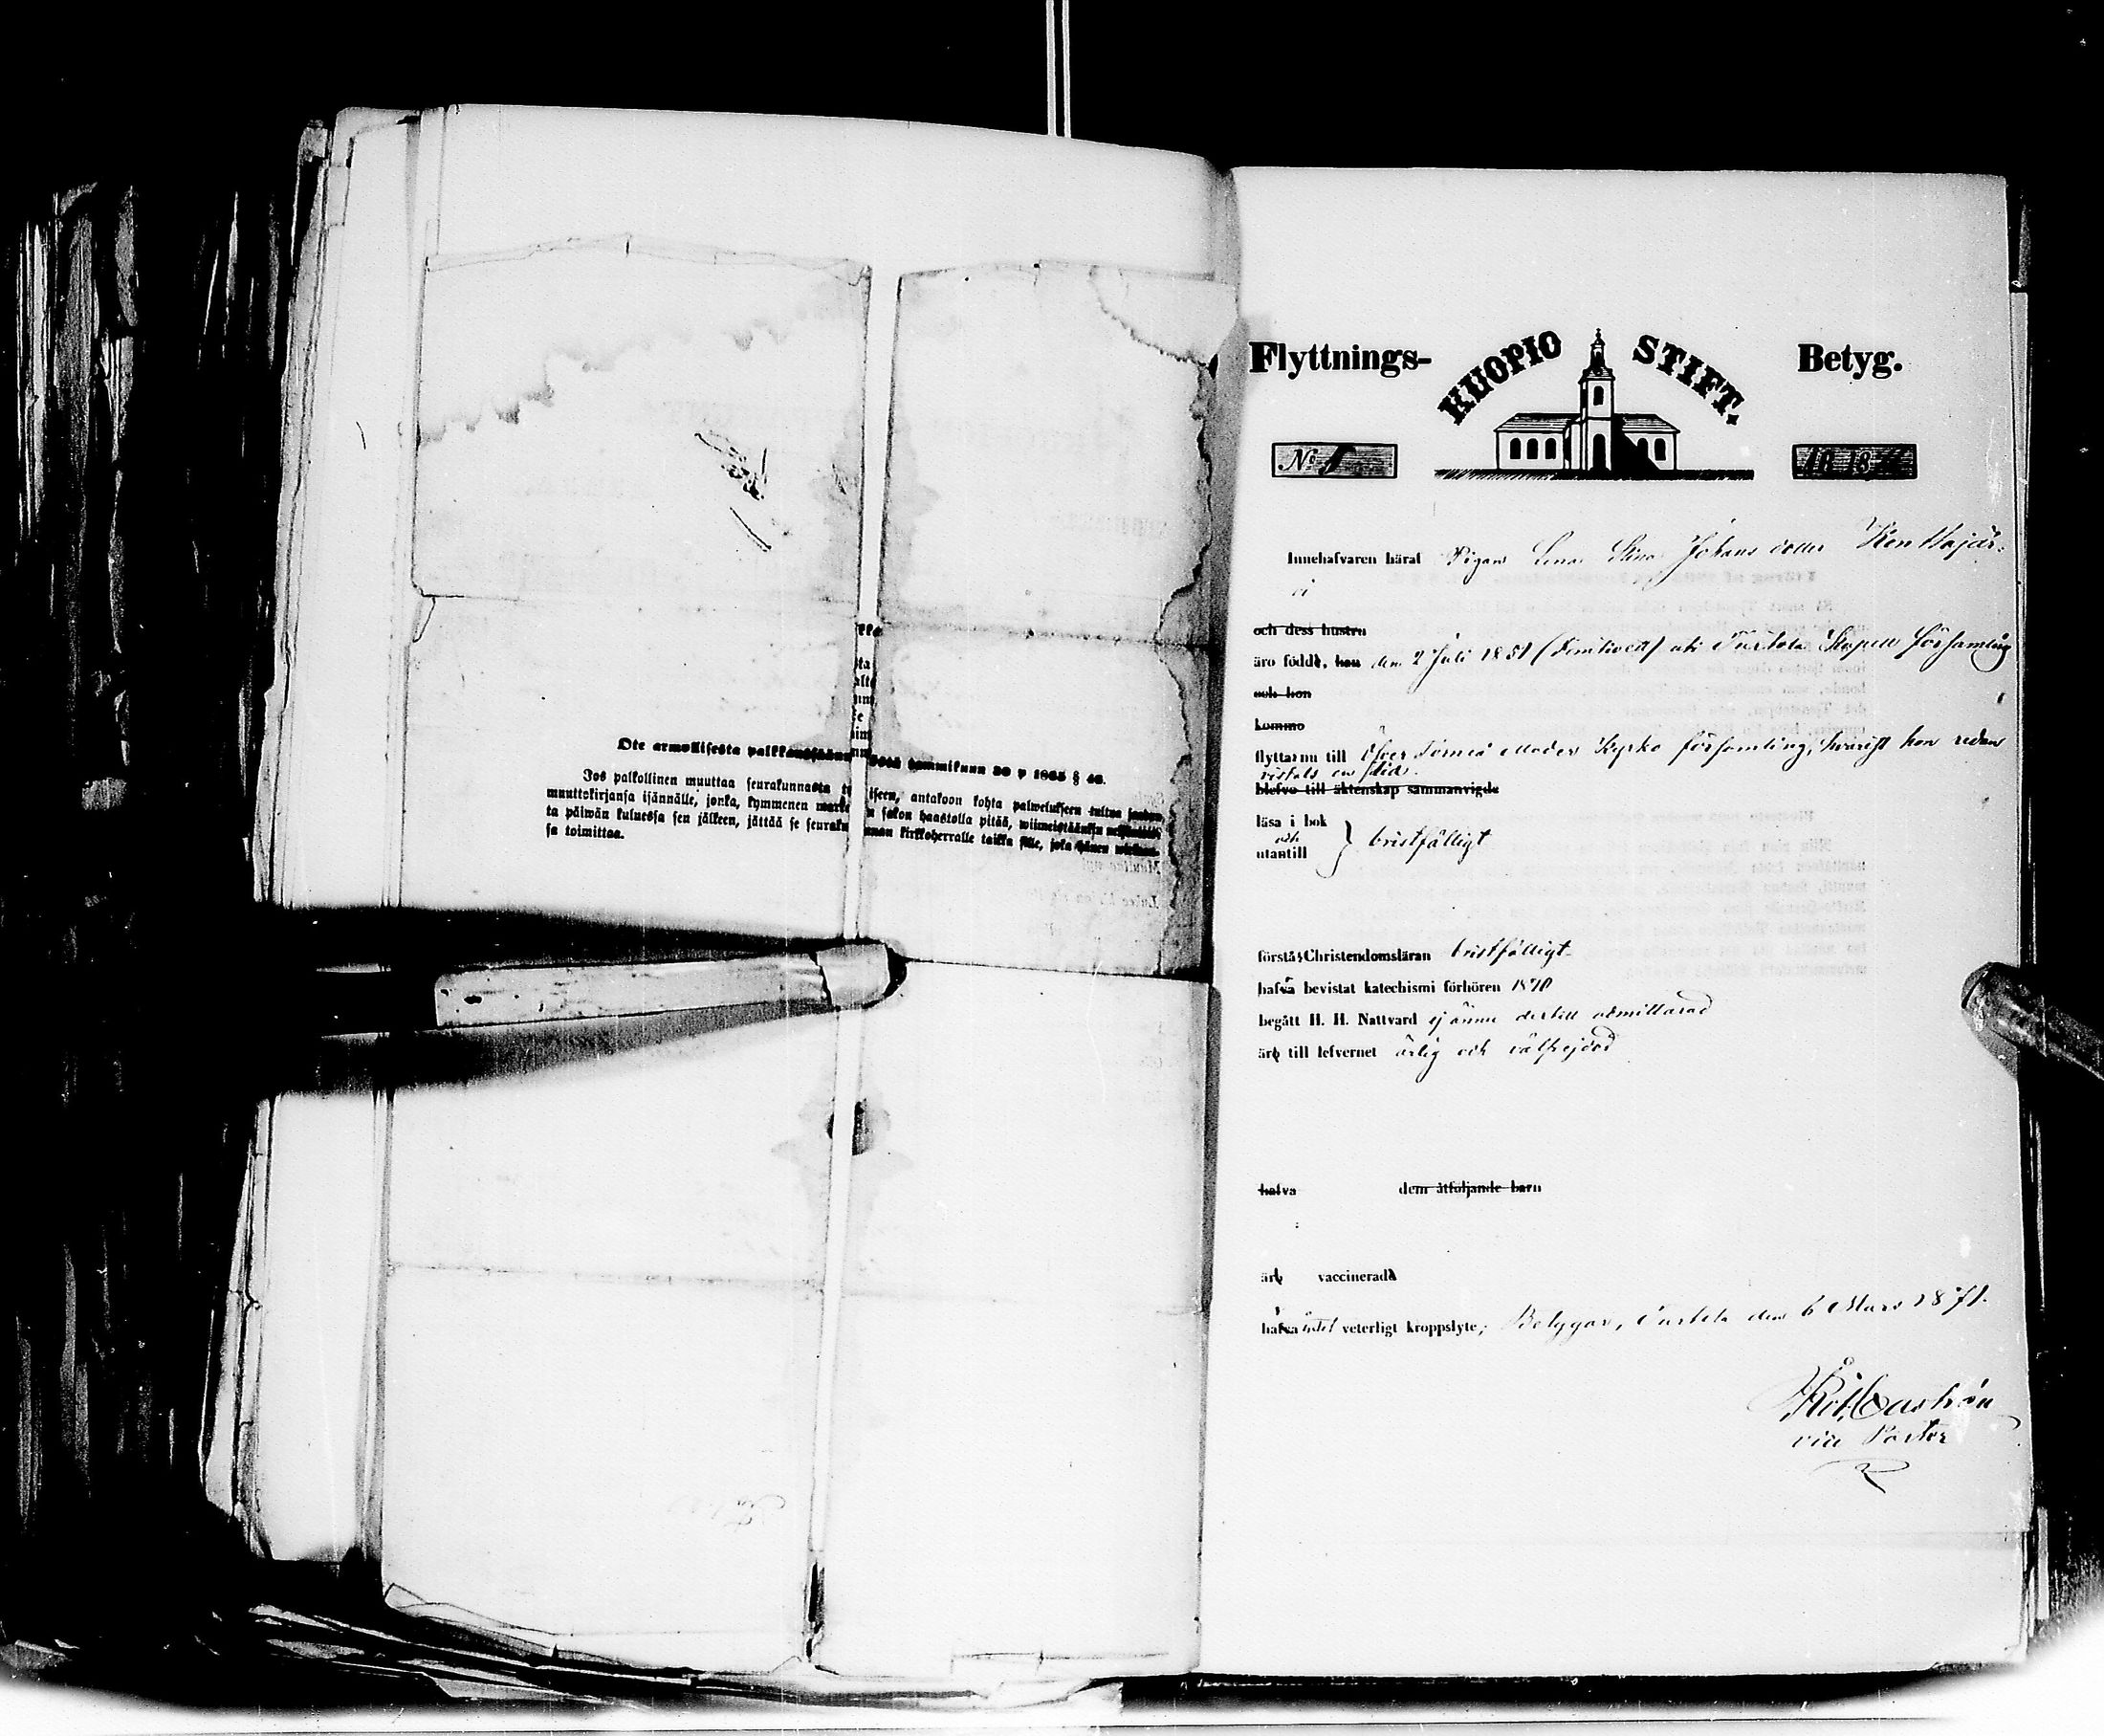 Ote armollisesta palkkaussäännöstä tammikuun 30 p 1865 § 48.
Jos palkollinen muuttaa seurakunnasta toiseen, antakoon kohta palwelukseen tultua
muuttokirjansa isännälle, jonka, kymmenen markan sakon haastolla pitää, wiimeistäänkin
ta päiwän kuluessa sen jälkeen, jättää se seurakunnan kirkkoherralle taikka sille, joka hänen
sa toimittaa.
Flyttnings- KUOPIO STIFT. Betyg.
No 1 18
Innehafvaren häraf Pigan Lena Stina Johans dotter Kenttäjär-
vi
och dess hustru
äro född, han den 2 Juli 1851 (femtioett) uti Turtola Kapell församling
och hon
komma
flyttar nu till Öfver Torneå Moder Kyrko församling, hvarest hon redan
vistats en tid.
blefvo till äktenskap sammanvigde
läsa i bok
och
utantill } bristfälligt
förstår Christendomsläran bristfälligt
hafva bevistat katechismi förhören 1870
begått H. H. Nattvard ej ännu dertill admitterad
är till lefvernet ärlig och välfrejdad
hafva dem åtföljande barn
är vaccinerad
hafva intet veterligt kroppslyte; Betygar, Turtola den 6 Mars 1871.
Castrén
vice Pastor